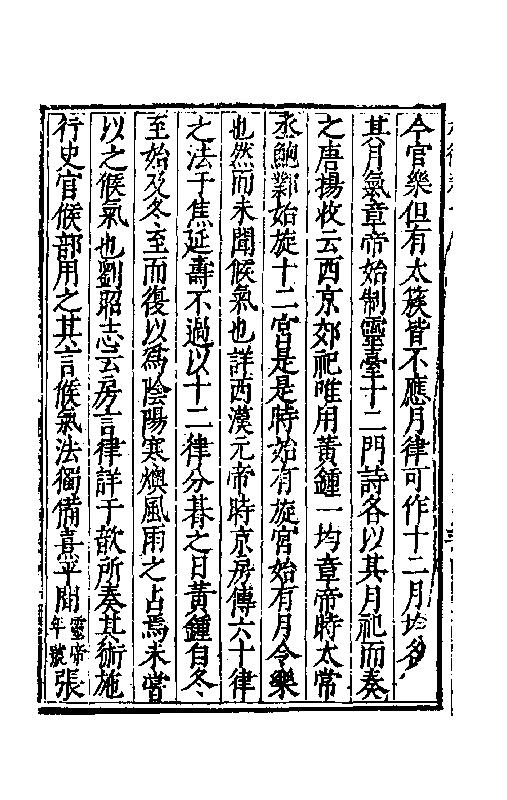 今官樂但有太蔟皆不應月律可作十二月均各
其月氣章帝始制靈臺十二門詩各以其月祀而奏
之唐楊收云西京郊祀唯用黃鍾一均章帝時太常
丞鮑鄴始旋十二宮是是時始有旋宮始有月令樂
也然而未聞候氣也詳西漢元帝時京房傳六十律
之法于焦延壽不過以十二律分朞之日黃鍾自冬
至始及冬至而復以爲陰陽寒燠風雨之占焉未嘗
以之候氣也劉昭志云房言律詳于歆所奏其術施
行史官候部用之其言候氣法獨備熹平間靈帝年號張